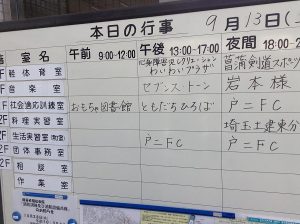 本日の行事 9月13日(
室名 午前 9:00-12:00 午後 13:00-17:00 夜間 18:00-2
軽体育室 心身障害児レクリエーション わいわいプラザ 菖蒲剣道スポーツ
音楽室 セブンストーン 岩本様
社会適応訓練室 おもちゃ図書館 ともだちひろば 戸=FC
2F 料理実習室 戸=FC
生活実習室(和室) 戸=FC 埼玉土建東分
2F 団体事務室 戸=FC
相談室
作業室